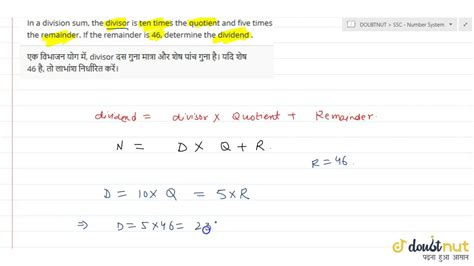 In a division sum, the divisor is ten times the quotient and five times
the remainder. If the remainder is 46, determine the dividend.
एक विभाजन योग में, divisor दस गुना मात्रा और शेष पांच गुना है। यदि शेष
46 है, तो लाभांश निर्धारित करें।
DOUBTNUT > SSC - Number System
dividend = divisor × Quotient + Remainder.
N = D × Q + R.
R = 46.
D = 10 × Q = 5 × R
⇒ D = 5 × 46 = 23
doubtnut
पढ़ना हुआ आसान